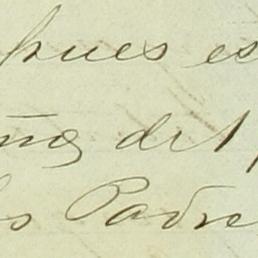 pues es
ño del
los Padre